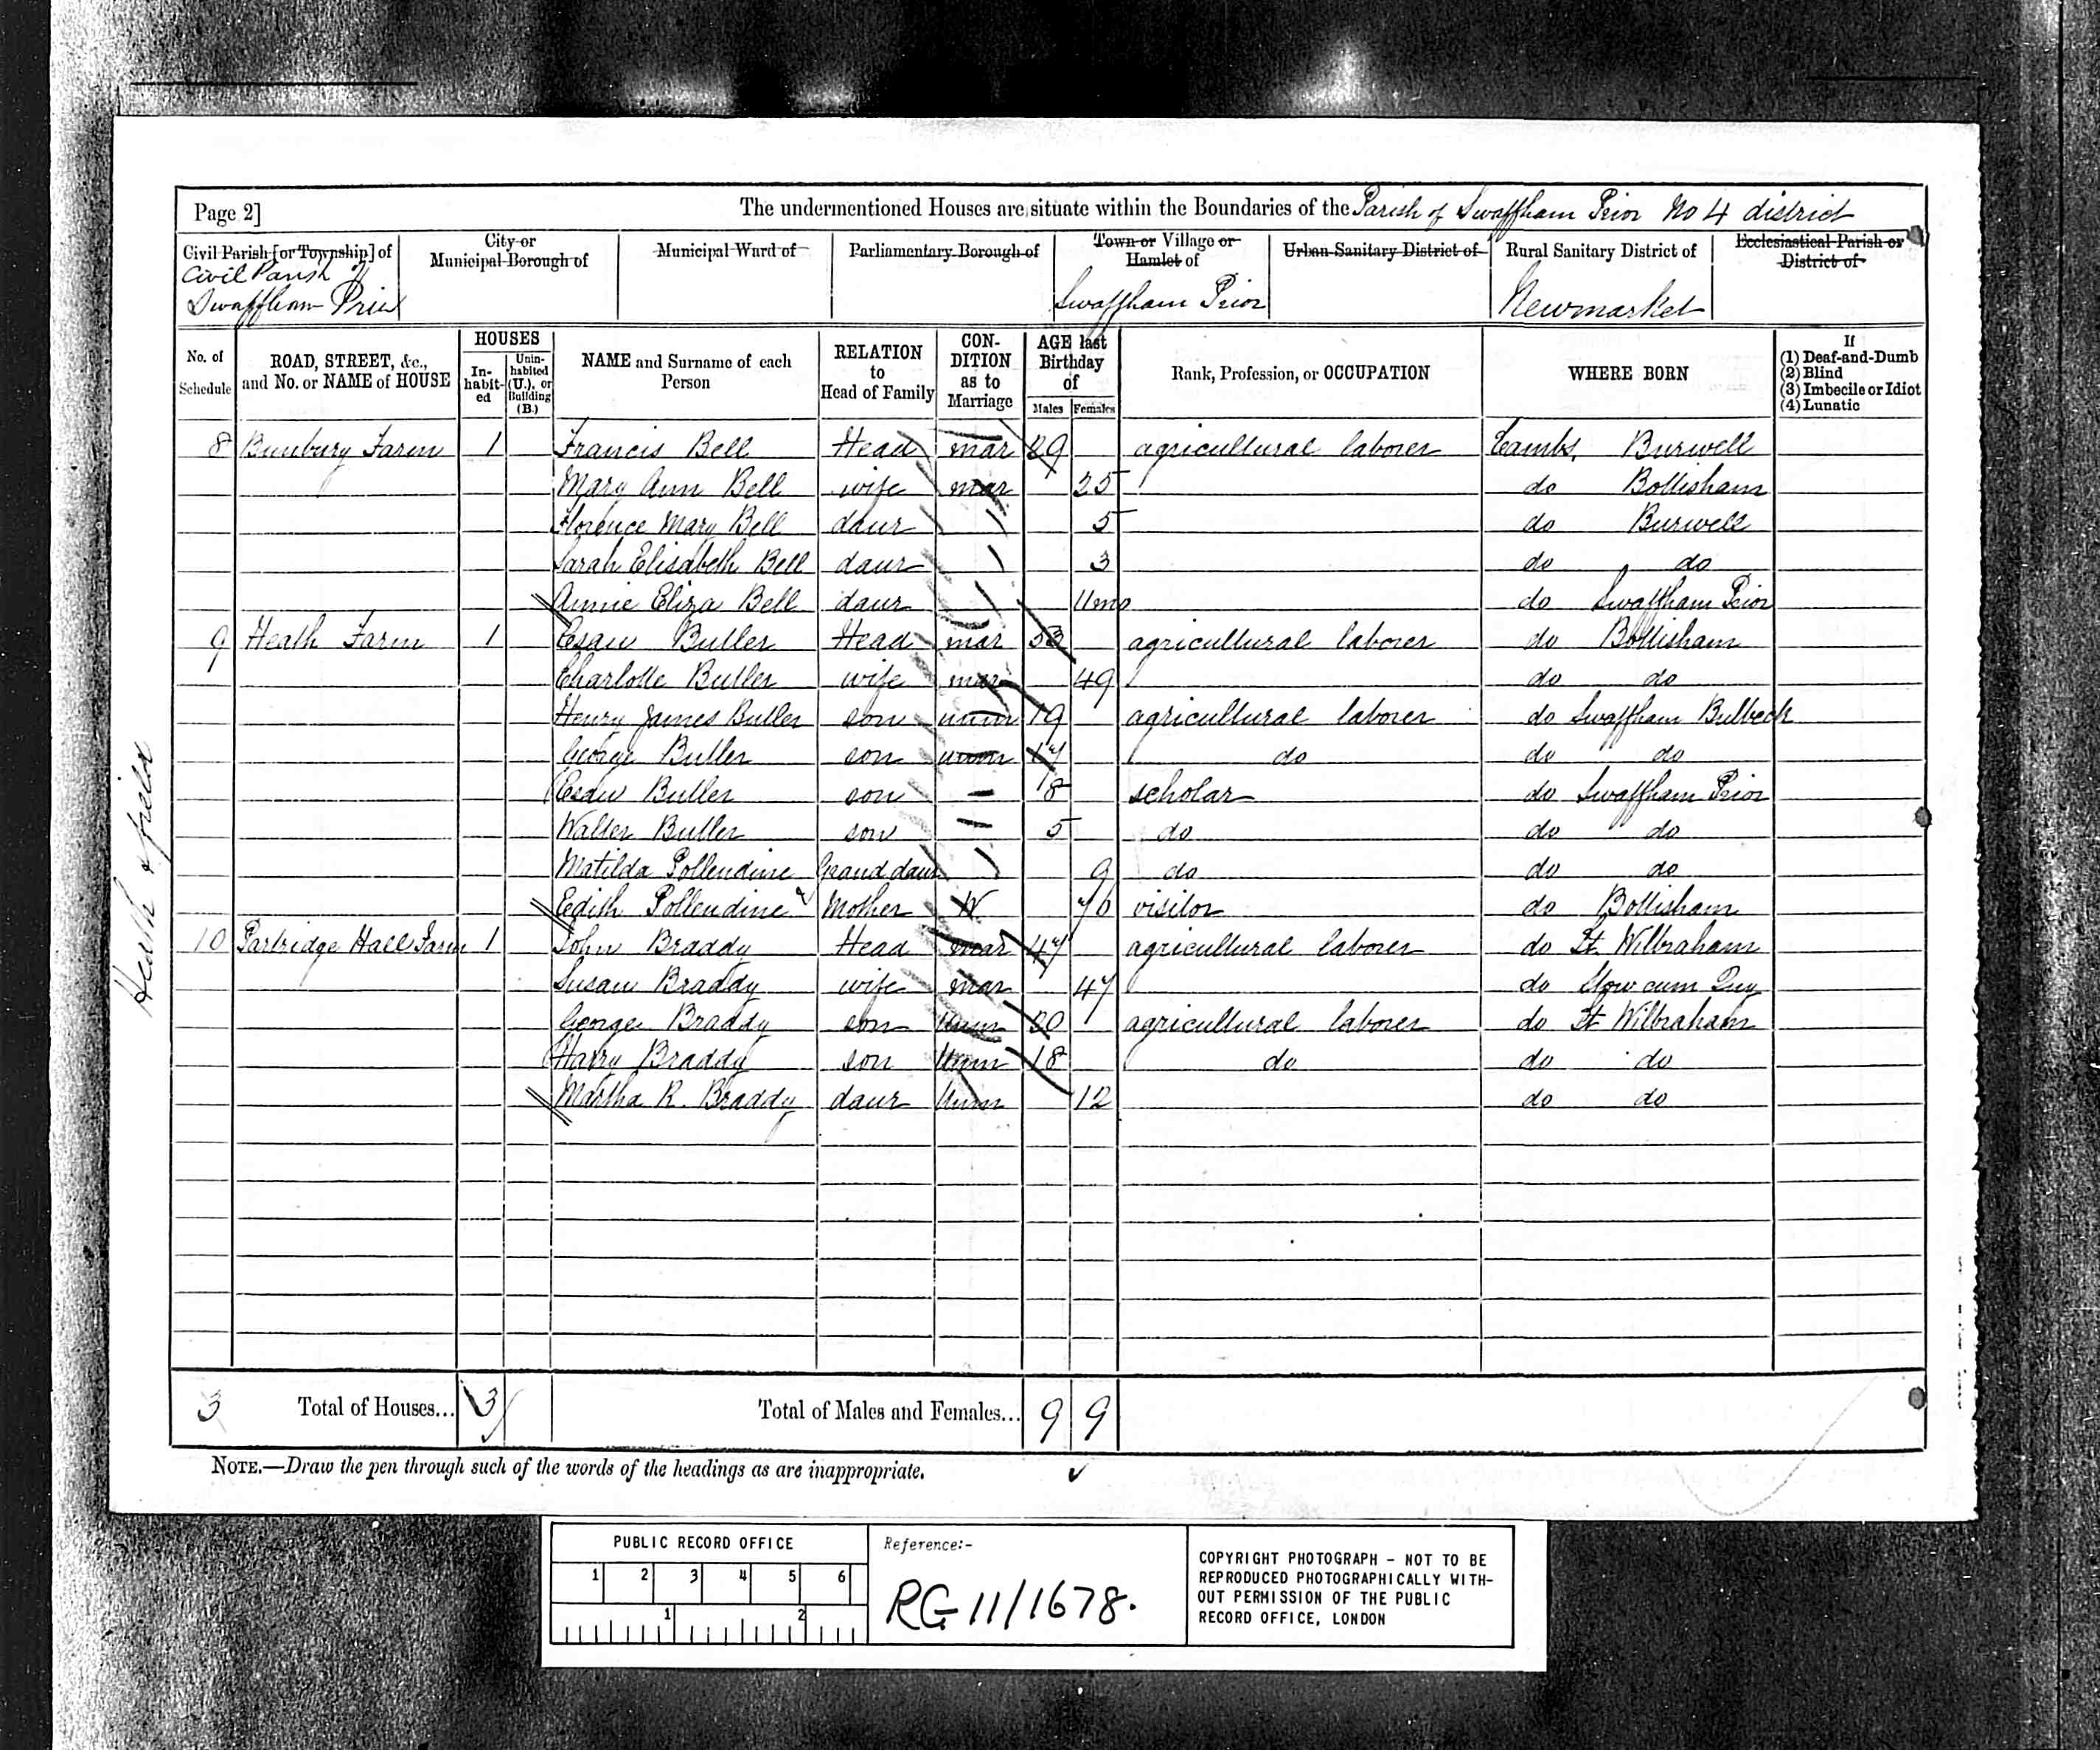 Page 2] The undermentioned Houses are situate within the Boundaries of the Parish of Swaffham Prior No 4 district
Civil Parish [or Township] of City or Municipal Borough of Municipal Ward of Parliamentary Borough of Town or Village or Hamlet of Urban Sanitary District of Rural Sanitary District of Ecclesiastical Parish or District of
Civil Parish of Swaffham Prior Swaffham Prior Newmarket
No. of Schedule ROAD, STREET, &c., and No. or NAME of HOUSE HOUSES Inhabited Uninhabited (U.), or Building (B.) NAME and Surname of each Person RELATION to Head of Family CONDITION as to Marriage AGE last Birthday of Males Females Rank, Profession, or OCCUPATION WHERE BORN If (1) Deaf-and-Dumb (2) Blind (3) Imbecile or Idiot (4) Lunatic
8 Bunbury Farm 1 Francis Bell Head mar 29 agricultural laborer Cambs. Burwell
Mary Ann Bell wife mar 25 do Bottisham
Florence Mary Bell daur 5 do Burwell
Sarah Elisabeth Bell daur 3 do do
Annie Eliza Bell daur 11mo do Swaffham Prior
9 Heath Farm 1 Esau Butler Head mar 53 agricultural laborer do Bottisham
Charlotte Butler wife mar 49 do do
Henry James Butler son unm 19 agricultural laborer do Swaffham Bulbeck
George Butler son unm 17 do do do
Esau Butler son 8 scholar do Swaffham Prior
Walter Butler son 5 do do do
Matilda Pollendine Grand daur 9 do do do
Edith Pollendine Mother W 76 visitor do Bottisham
10 Partridge Hall Farm 1 John Braddy Head mar 47 agricultural laborer do Lt. Wilbraham
Susan Braddy wife mar 47 do Stow cum Quy
George Braddy son Unm 20 agricultural laborer do Lt Wilbraham
Harry Braddy son Unm 18 do do do
Martha R. Braddy daur Unm 12 do do
3 Total of Houses... 3 Total of Males and Females... 9 9
NOTE.—Draw the pen through such of the words of the headings as are inappropriate.
PUBLIC RECORD OFFICE
1 2 3 4 5 6
1 2
Reference:-
RG 11/1678.
COPYRIGHT PHOTOGRAPH - NOT TO BE
REPRODUCED PHOTOGRAPHICALLY WITH-
OUT PERMISSION OF THE PUBLIC
RECORD OFFICE, LONDON